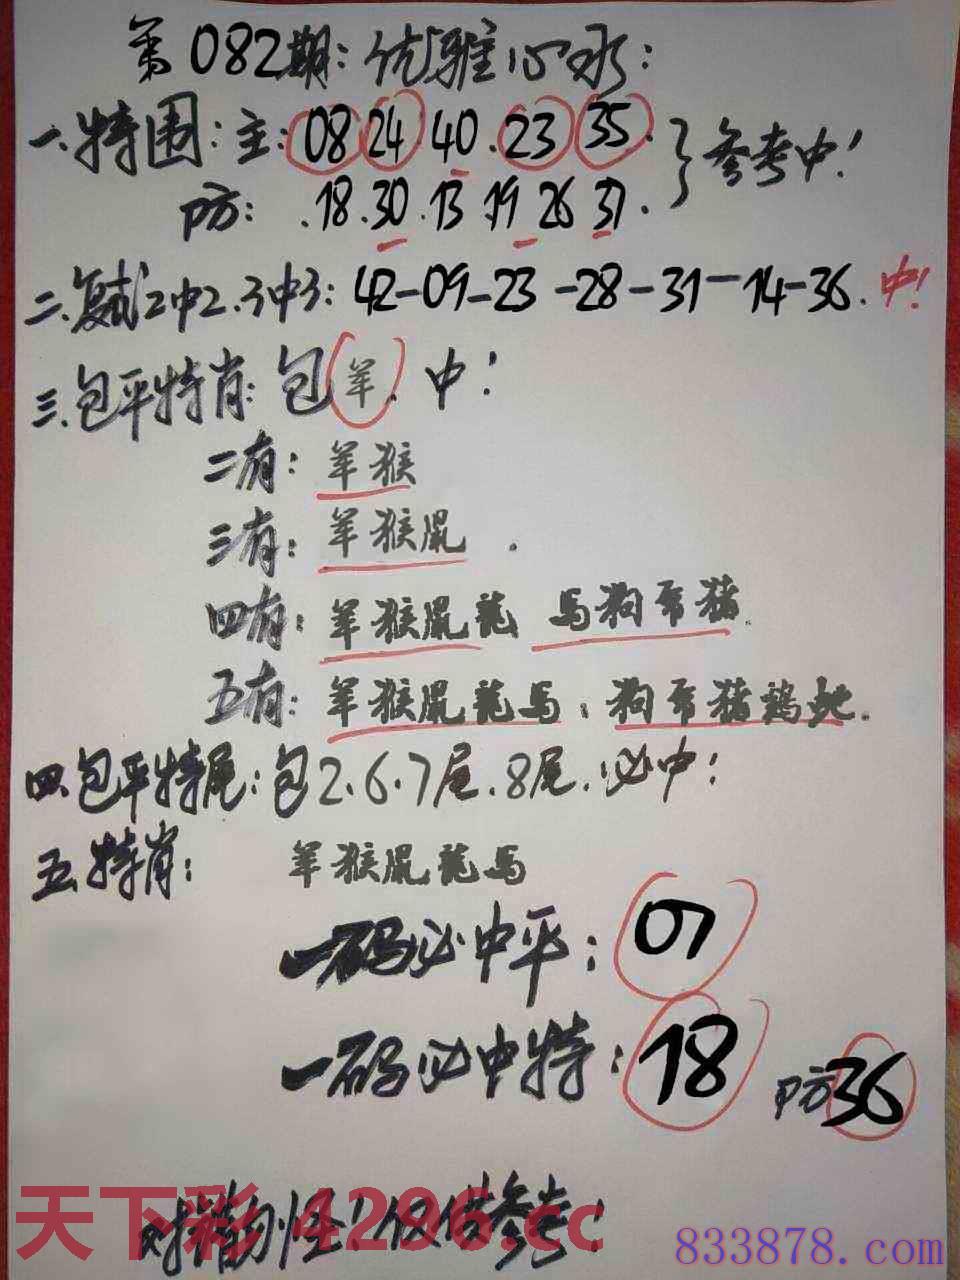 第082期:优雅心水:
一.特围:主:08 24.40.23 35.
防:.18.30.13 19 26 31.
}参考中!
二.复式2中2.3中3:42-09-23-28-31-14-36.中!
三.包平特肖:包羊.中!
二有:羊猴
三有:羊猴鼠.
四有:羊猴鼠龍 马狗兔猪.
五有:羊猴鼠龍马;狗兔猪鸡蛇.
四.包平特尾:包2.6.7尾.8尾.必中!
五.特肖:羊猴鼠龍马
一码必中平:07
一码必中特:18 防36
对错勿怪!仅供参考!
天下彩 4296.cc
833878.com